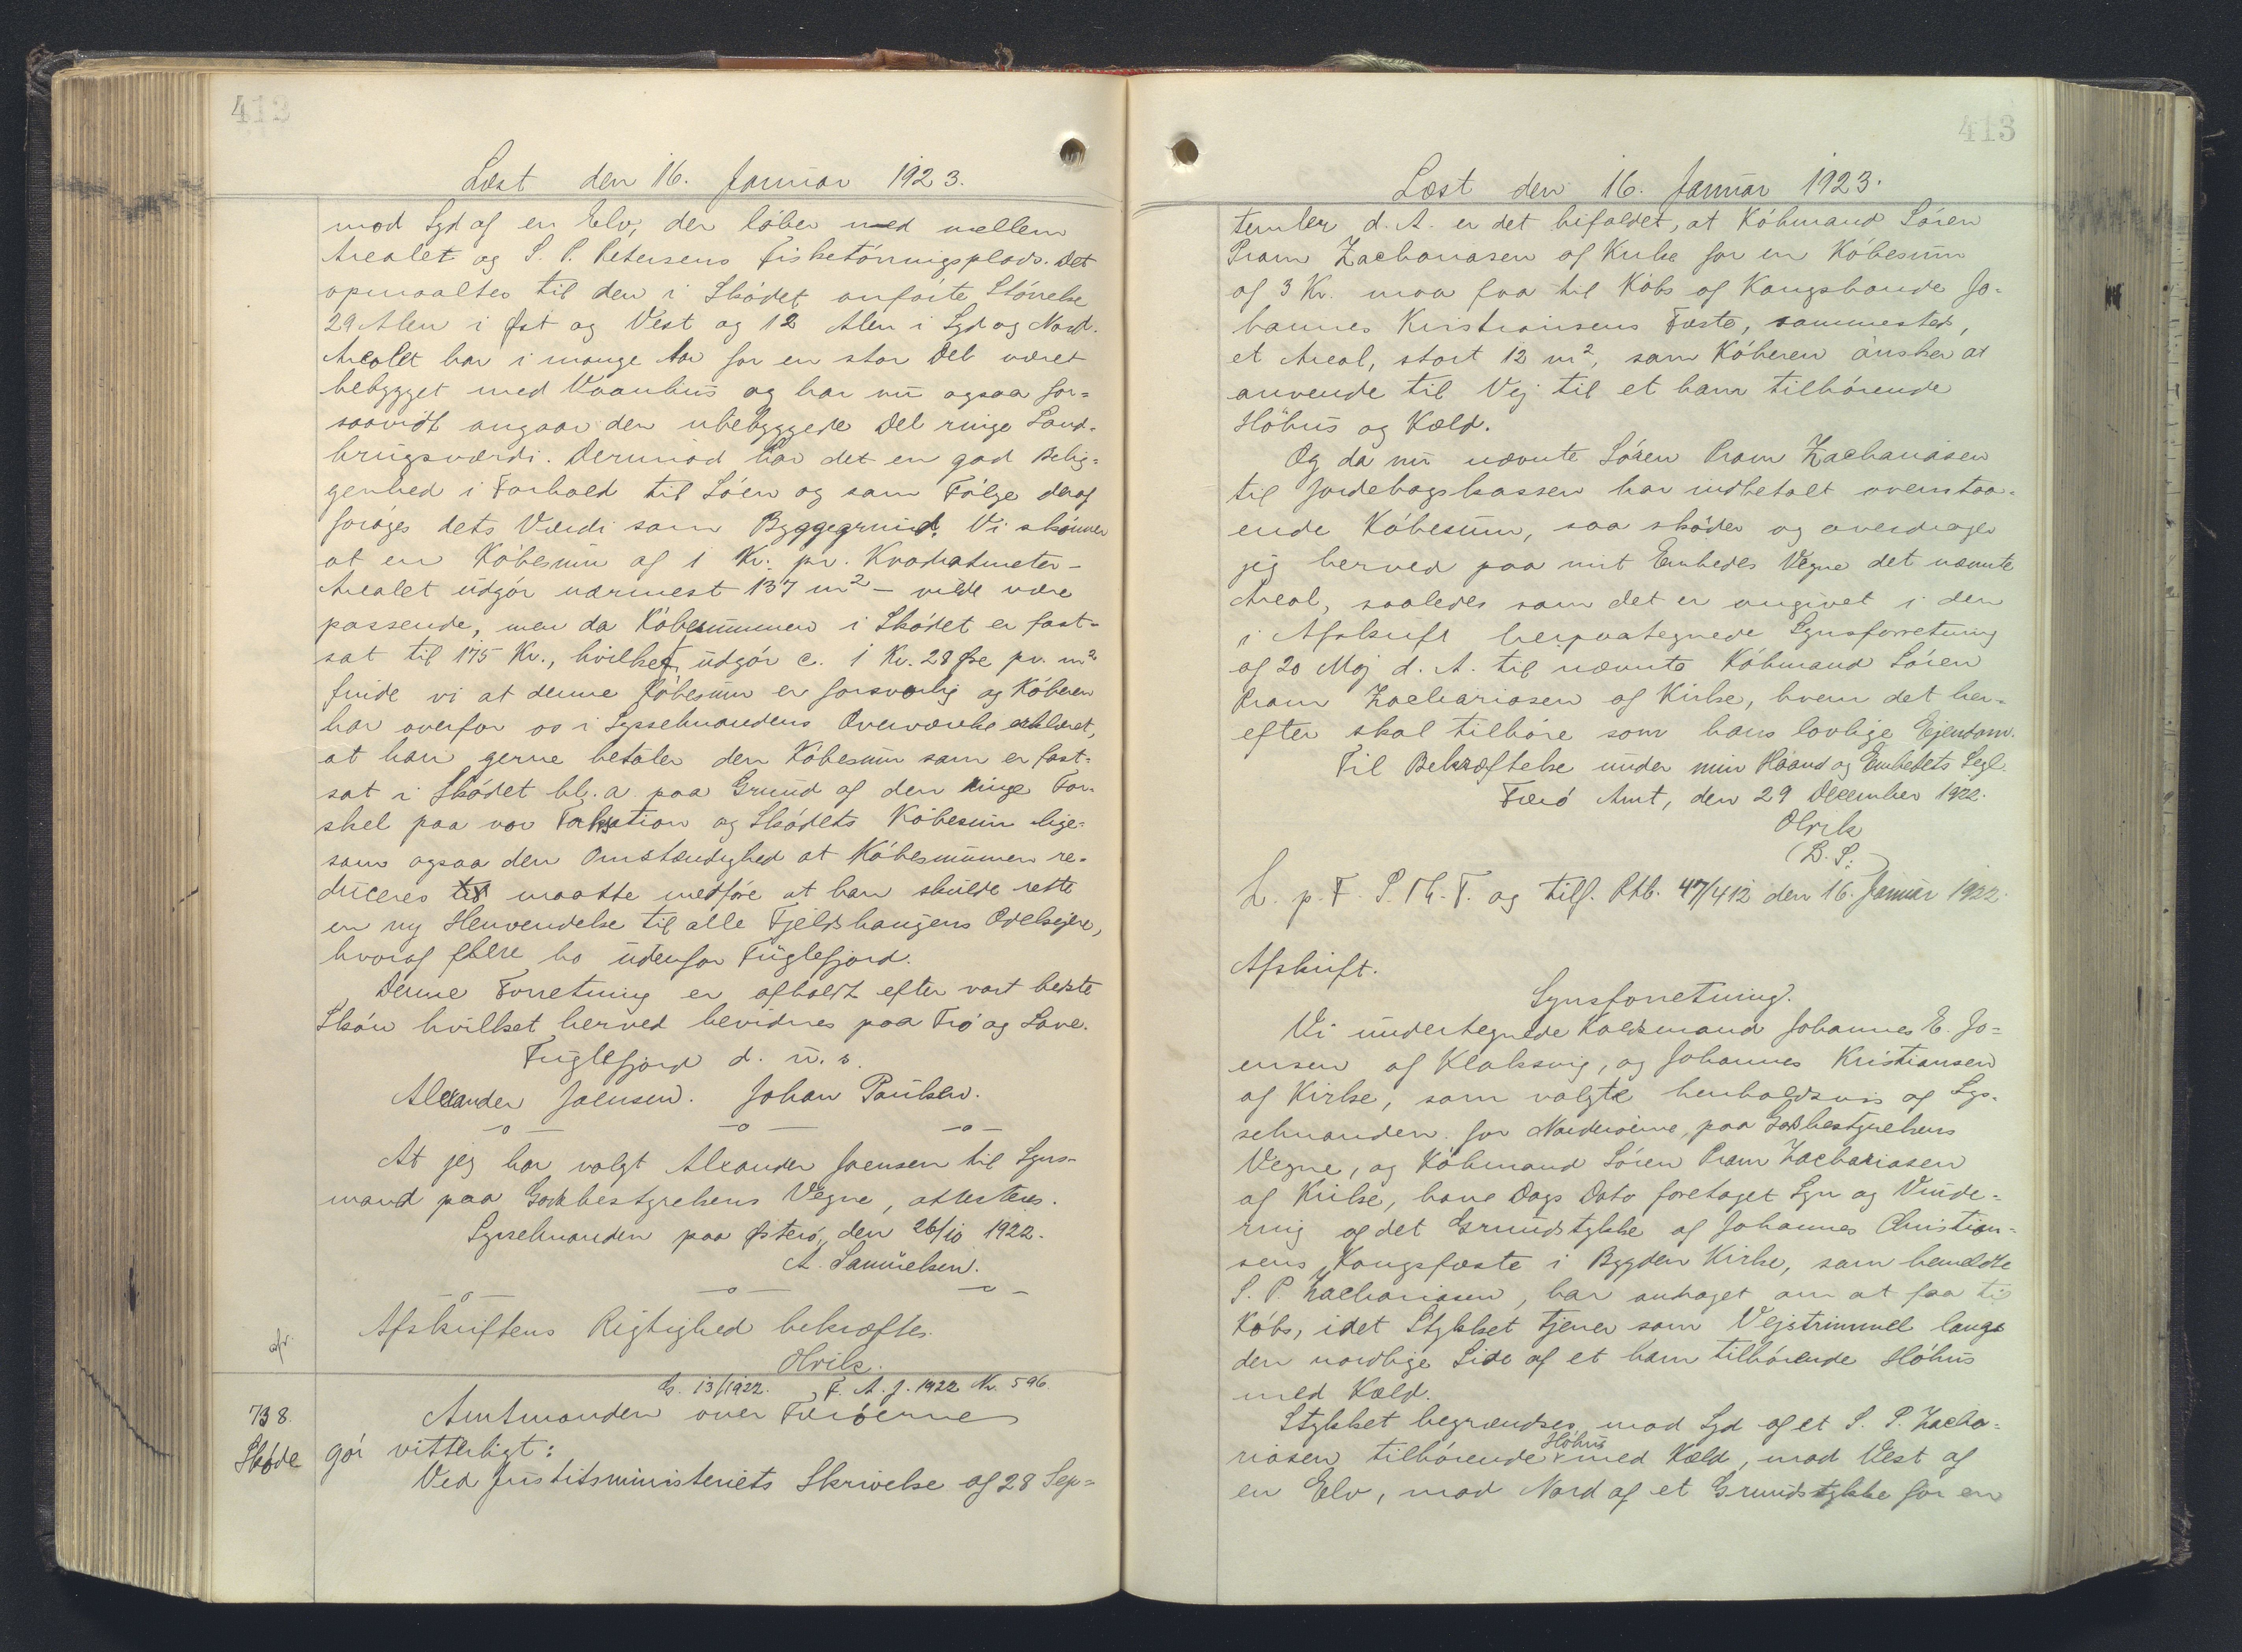 412
Læst den 16. Januar 1923.
mod Syd af en Elv, der løber ned mellem
Arealet og S. P. Petersens Fisketørringsplads. Det
opmaaltes til den i Skødet anførte Størrelse
29 Alen i Øst og Vest og 12 Alen i Syd og Nord.
Arealet har i mange Aar for en stor Del været
bebygget med Vaanhus og har nu ogsaa for-
saavidt angaar den ubebyggede Del ringe Land-
brugsværdi. Derimod har det en god Belig-
genhed i Forhold til Søen og som Følge deraf
forøges dets Værdi som Byggegrund. Vi skønner
at en Købesum af 1 Kr. pr. Kvadratmeter -
Arealet udgør nærmest 137 m² - vilde være
passende, men da Købesummen i Skødet er fast-
sat til 175 Kr., hvilket udgør c. 1 Kr. 28 Øre pr. m²
finde vi at denne Købesum er forsvarlig og Køberen
har overfor os i Sysselmandens Overværelse erklæret,
at han gerne betaler den Købesum som er fast-
sat i Skødet bl. a. paa Grund af den ringe For-
skel paa vor Taksation og Skødets Købesum lige-
som ogsaa den Omstændighed at Købesummen re-
duceres maatte medføre at han skulde rette
en ny Henvendelse til alle Fjeldshaugens Odelsejere,
hvoraf flere bo udenfor Fuglefjord.
Denne Forretning er afholdt efter vort bedste
Skøn hvilket herved bevidnes paa Tro og Love.
Fuglefjord d. u. s.
Alexander Joensen. Johan Poulsen.
—o— —o— —o—
At jeg har valgt Alexander Joensen til Syns-
mand paa Godsbestyrelsens Vegne, attesteres.
Sysselmanden paa Østerø, den 26/10 1922.
A. Samuelsen.
—o— —o— —o—
Afskriftens Rigtighed bekræftes.
afr.
Olrik.
G. 13/1922. F. A. J. 1922 Nr. 596.
738. Amtmanden over Færøerne
Skøde gør vitterligt:
Ved Justitsministeriets Skrivelse af 28 Sep-
413
Læst den 16. Januar 1923.
tember d. A. er det bifaldet, at Købmand Søren
Pram Zachariasen af Kirke for en Købesum
af 3 Kr. maa faa til Købs af Kongsbonde Jo-
hannes Kristiansens Fæste, sammesteds,
et Areal, stort 12 m², som Køberen ønsker at
anvende til Vej til et ham tilhørende
Höhus og Kæld.
Og da nu nævnte Søren Pram Zachariasen
til Jordebogskassen har indbetalt ovenstaa-
ende Købesum, saa skøder og overdrager
jeg herved paa mit Embedes Vegne det nævnte
Areal, saaledes som det er angivet i den
i Afskrift herpaategnede Synsforretning
af 20 Maj d. A. til nævnte Købmand Søren
Pram Zachariasen af Kirke, hvem det her-
efter skal tilhøre som hans lovlige Ejendom.
Til Bekræftelse under min Haand og Embedets Segl.
Færø Amt, den 29 December 1922.
Olrik
(L. S.)
L. p. F. S. Th. T. og tilf. Ptb. 47/412 den 16. Januar 1922.
Afskrift.
Synsforretning.
Vi undertegnede Købmand Johannes E. Jo-
ensen af Klaksvig, og Johannes Kristiansen
af Kirke, som valgte henholdsvis af Sys-
selmanden for Norderøerne, paa Godsbestyrelsens
Vegne, og Købmand Søren Pram Zachariasen
af Kirke, have Dags Dato foretaget Syn og Vurde-
ring af det Grundstykke af Johannes Christian-
sens Kongsfæste i Bygden Kirke, som bemeldte
S. P. Zachariasen, har andraget om at faa til
Købs, idet Stykket tjener som Vejstrimmel langs
den nordlige Side af et ham tilhørende Höhus
med Kæld.
Stykket begrændses mod Syd af et S. P. Zacha-
riasen tilhørende Höhus med Kæld, mod Vest af
en Elv, mod Nord af et Grundstykke for en